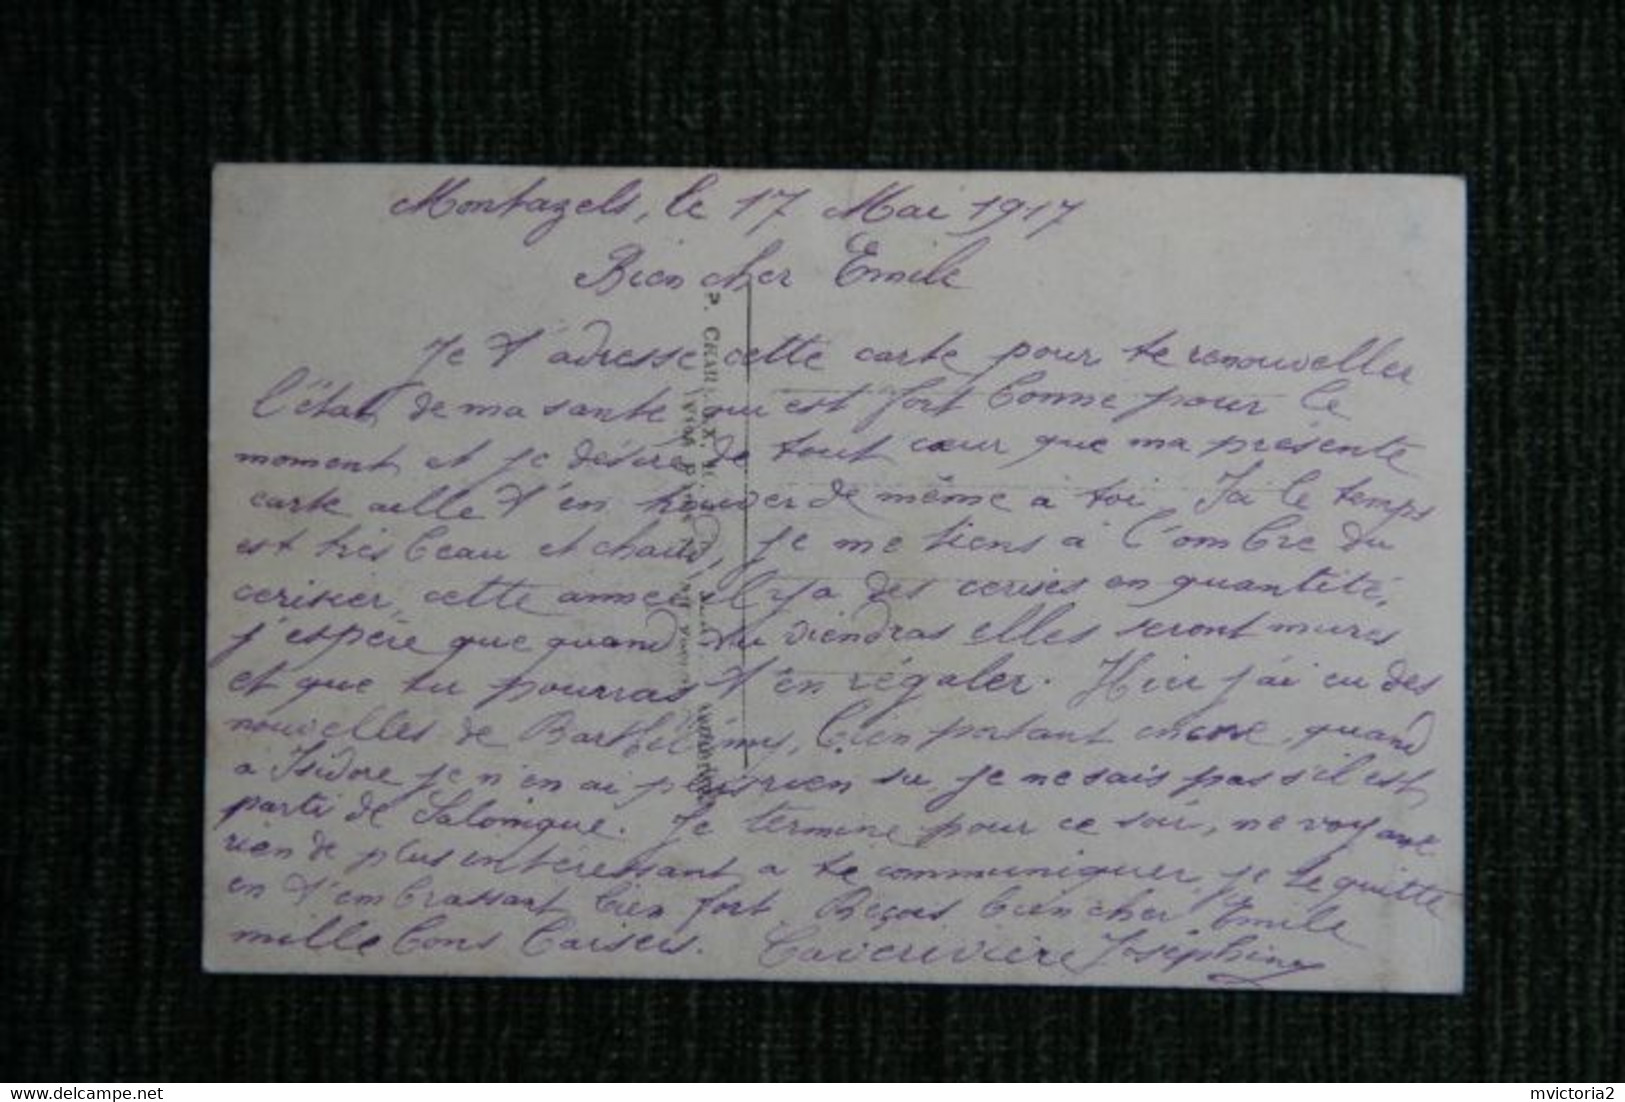 Montazels, le 17 Mai 1917
Bien cher Emile
Je t'adresse cette carte pour te renouveller
l'état de ma santé qui est fort bonne pour le
moment et je désire de tout cœur que ma présente
carte aille t'en trouver de même à toi. Ici le temps
est très beau et chaud, je me tiens à l'ombre du
cerisier, cette année il y a des cerises en quantité,
j'espère que quand tu viendras elles seront mures
et que tu pourras t'en régaler. Hier j'ai eu des
nouvelles de Barthélémy, bien portant encore, quand
a Isidore je n'en ai plus rien su, je ne sais pas s'il est
parti de Salonique. Je termine pour ce soir, ne voyant
rien de plus intéressant a te communiquer, je te quitte
en t'embrassant bien fort. Reçois bien cher Emile
mille bons baisers. Caverivière Joséphine
mvictoria2